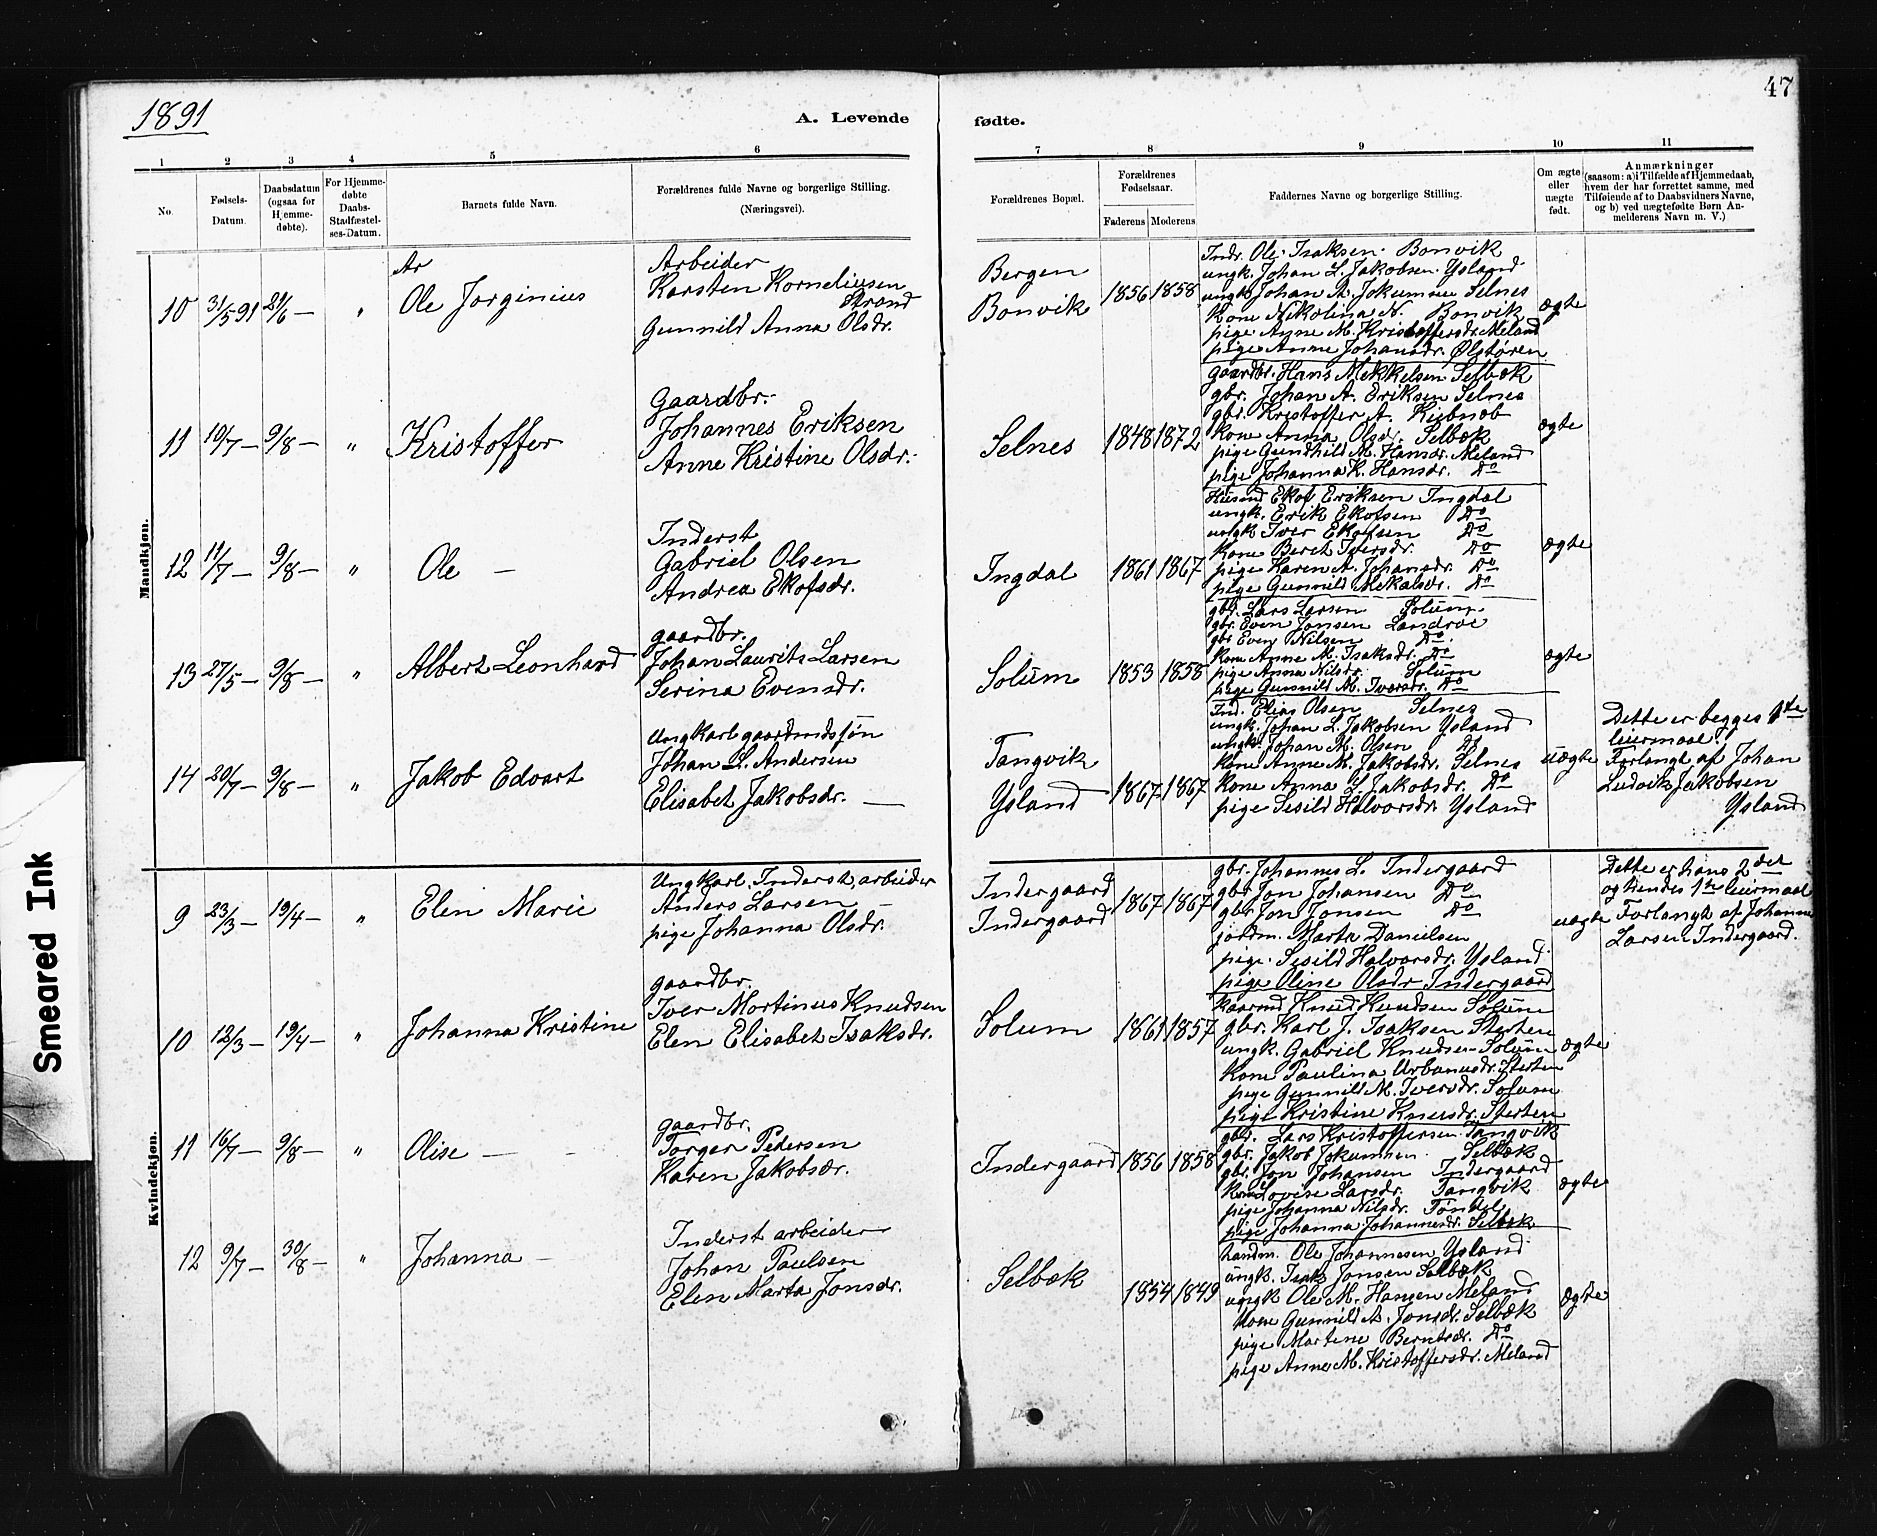 1891
47
A. Levende fødte.
1 2 3 4 5 6 7 8 9 10 11
No.
Fødsels-Datum.
Daabsdatum (ogsaa for Hjemme-døbte).
For Hjemme-døbte Daabs-Stadfæstel-ses-Datum.
Barnets fulde Navn.
Forældrenes fulde Navne og borgerlige Stilling.
(Næringsvei).
Forældrenes Bopæl.
Forældrenes Fødselsaar.
Faderens Moderens
Faddernes Navne og borgerlige Stilling.
Om ægte eller uægte født.
Anmærkninger
(saasom: a) i Tilfælde af Hjemmedaab,
hvem der har forrettet samme, med
Tilføiende af to Daabsvidners Navne,
og b) ved uægtefødte Børn An-
melderens Navn m. V.)
Mandkjøn.
10 31/5 91 21/6 — "
Ole Jorginius
Arbeider
Karsten Korneliusen
Strand
Gunnild Anna Olsdr.
Bergen
Bonvik
1856 1858
Indr. Ole Isaksen Bonvik
ungk. Johan L. Jakobsen Ysland
ungk. Johan A. Jokumsen Selnes
Kone Nikolina N. Bonvik
pige Anne M. Kristoffersdr. Meland
pige Anne Johansdr. Ølstøren
ægte
11 10/7 — 9/8 — "
Kristoffer
Gaardbr.
Johannes Eriksen
Anne Kristine Olsdr.
Selnes
1848 1872
gaardbr. Hans Mekkelsen Selbæk
gbr. Johan A. Eriksen Selnes
gbr. Kristoffer A.
Kone Anna Olsdr. Selbæk
pige Gundhild M. Hansdr. Meland
pige Johanna K. Hansdr. Do
ægte
12 11/7 — 9/8 — "
Ole —
Inderst
Gabriel Olsen
Andrea Ekofsdr.
Ingdal
1861 1867
Husmd Ekof Eriksen Ingdal
ungk. Erik Ekofsen Do
ungk Iver Ekofsen Do
Kone Beret Iversdr. Do
pige Karen A. Johansdr. Do
pige Gunnild Mekalsdr. Do
ægte
13 27/5 — 9/8 — "
Albert Leonhard
gaardbr.
Johan Laurits Larsen
Serina Evensdr.
Solum
1853 1858
gbr. Lars Larsen Solum
gbr. Even Jonsen Landroe
gbr Even Nilsen Do
Kone Anne M. Isaksdr. Do
pige Anna Nilsdr. Solum
pige Gunnild M. Iversdr. Do
ægte
14 20/7 — 9/8 — "
Jakob Edvart
Ungkarl gaardmdssøn
Johan L. Andersen
Elisabet Jakobsdr. —
Tangvik
Ysland
1867 1867
Ind. Elias Olsen Selnes
ungk. Johan L. Jakobsen Ysland
ungk. Johan M. Olsen Do
Kone Anne M. Jakobsdr. Selnes
Kone Anna L. Jakobsdr. Do
pige Sesild Halvorsdr. Ysland
uægte
Dette er begges 1ste
leiermaal.
Forlangt af Johan
Ludvik Jakobsen
Ysland
Kvindekjøn.
9 23/3 — 19/4 — "
Elen Marie
Ungkarl. Inderst, arbeider
Anders Larsen —
pige Johanna Olsdr.
Indergaard
Indergaard
1867 1867
gbr. Johannes L. Indergaard
gbr Jon Johansen Do
gbr Jon Jonsen Do
jordm. Marta Danielsen
pige Sesild Halvorsdr. Ysland
pige Oline Olsdr Indergaard
uægte
Dette er hans 2det
og hendes 1ste leiermaal
Forlangt af Johannes
Larsen Indergaard.
10 12/3 — 19/4 — "
Johanna Kristine
gaardbr.
Iver Martinus Knudsen
Elen Elisabet Isaksdr.
Solum
1861 1857
Kaarmd Knud Knudsen Solum
gbr. Karl J. Isaksen Sterten
ungk. Gabriel Knudsen Solum
Kone Paulina Urbanusdr. Sterten
pige Gunnild M. Iversdr. Solum
pige Kristine Sterten
ægte
11 16/7 — 9/8 — "
Olise — —
gaardbr.
Torger Pedersen
Karen Jakobsdr.
Indergaard
1856 1858
gbr. Lars Kristoffersen Tangvik
gbr. Jakob Jokumsen Selbæk
gbr Jon Johansen Indergaard
Kone Lovise Larsdr. Tangvik
pige Johanna Nilsdr.
pige Johanna Johannesdr. Selbæk
ægte
12 9/7 — 30/8 — "
Johanna —
Inderst arbeider
Johan Paulsen
Elen Marta Jonsdr.
Selbæk
1854 1849
handm. Ole Johannesen Ysland
ungk. Isak Jonsen Selbæk
ungk Ole M. Hansen Meland
Kone Gunnild A. Jonsdr. Selbæk
pige Martine Berntsdr. Do
pige Anne M. Kristoffersdr. Meland
ægte
Smeared Ink